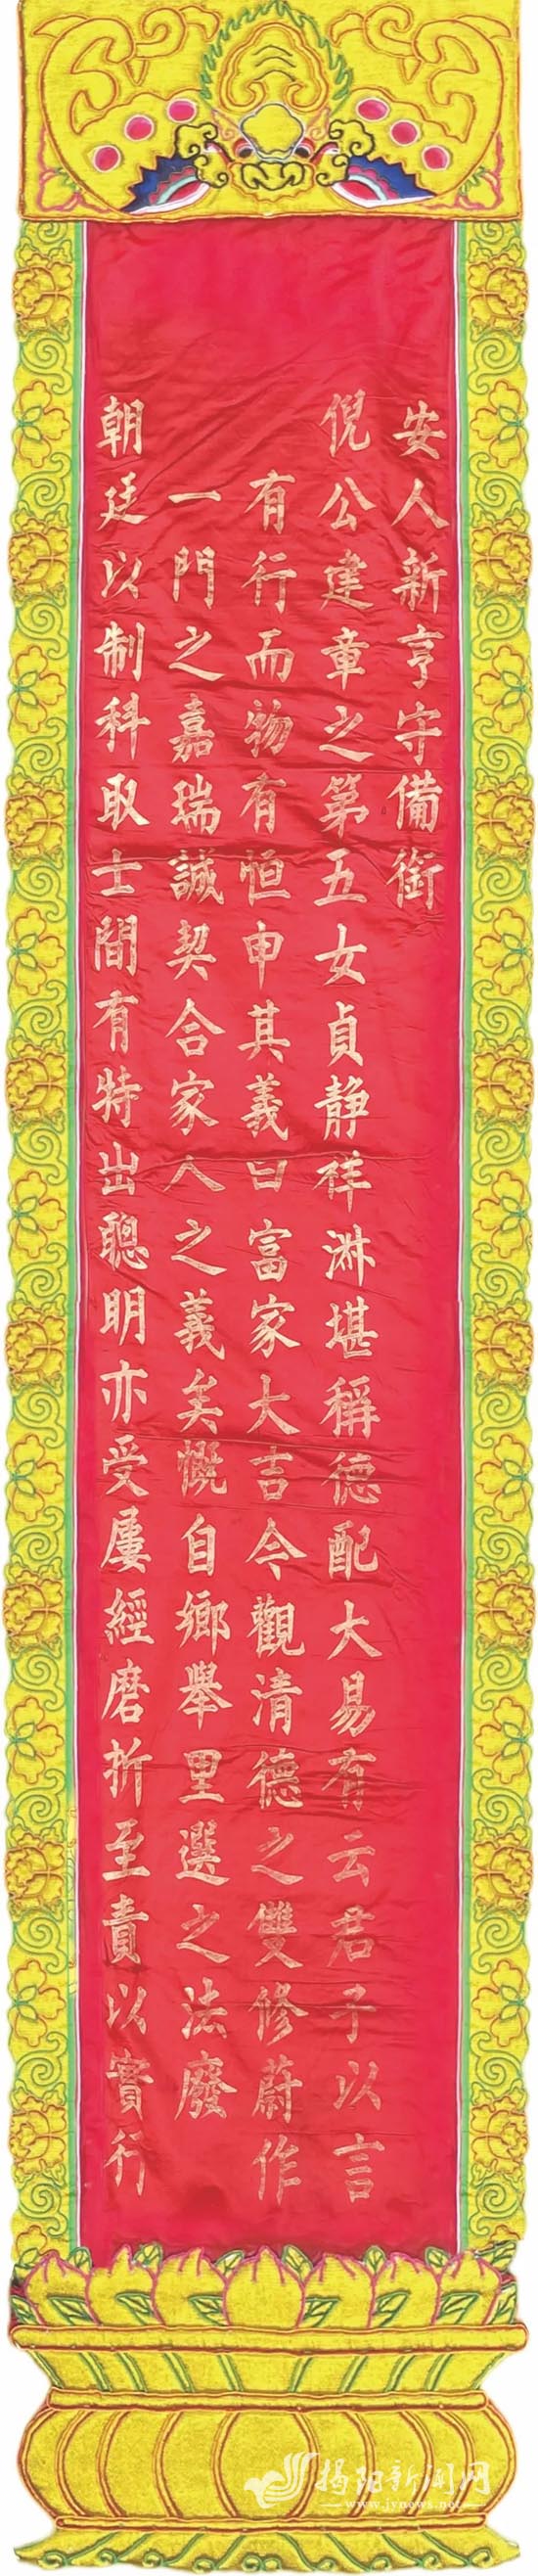 安人新亨守備銜
倪公建章之第五女貞靜祥淋堪稱德配大易有云君子以言
有行而物有恒申其義曰富家大吉今觀清德之雙修蔚作
一門之嘉瑞誠契合家人之義矣慨自鄉舉里選之法廢
朝廷以制科取士間有特出聰明亦受屢經磨折至責以實行
揭阳新闻网
www.jynews.net